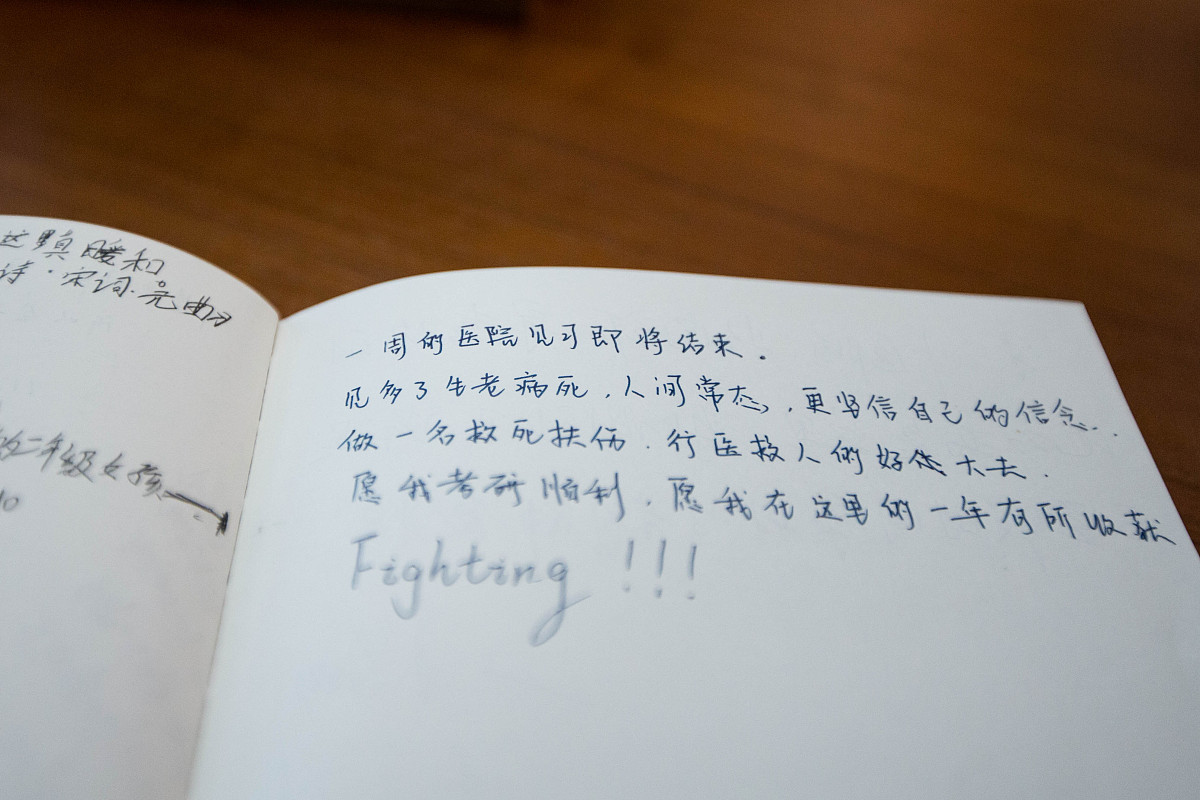 这里真暖和
诗·宋词·元曲
二年级女孩
10
一周的医院见习即将结束.
见多了生老病死,人间常态,更坚信自己的信念..
做一名救死扶伤.行医救人的好医大夫.
愿我考研顺利,愿我在这里的一年有所收获
Fighting!!!